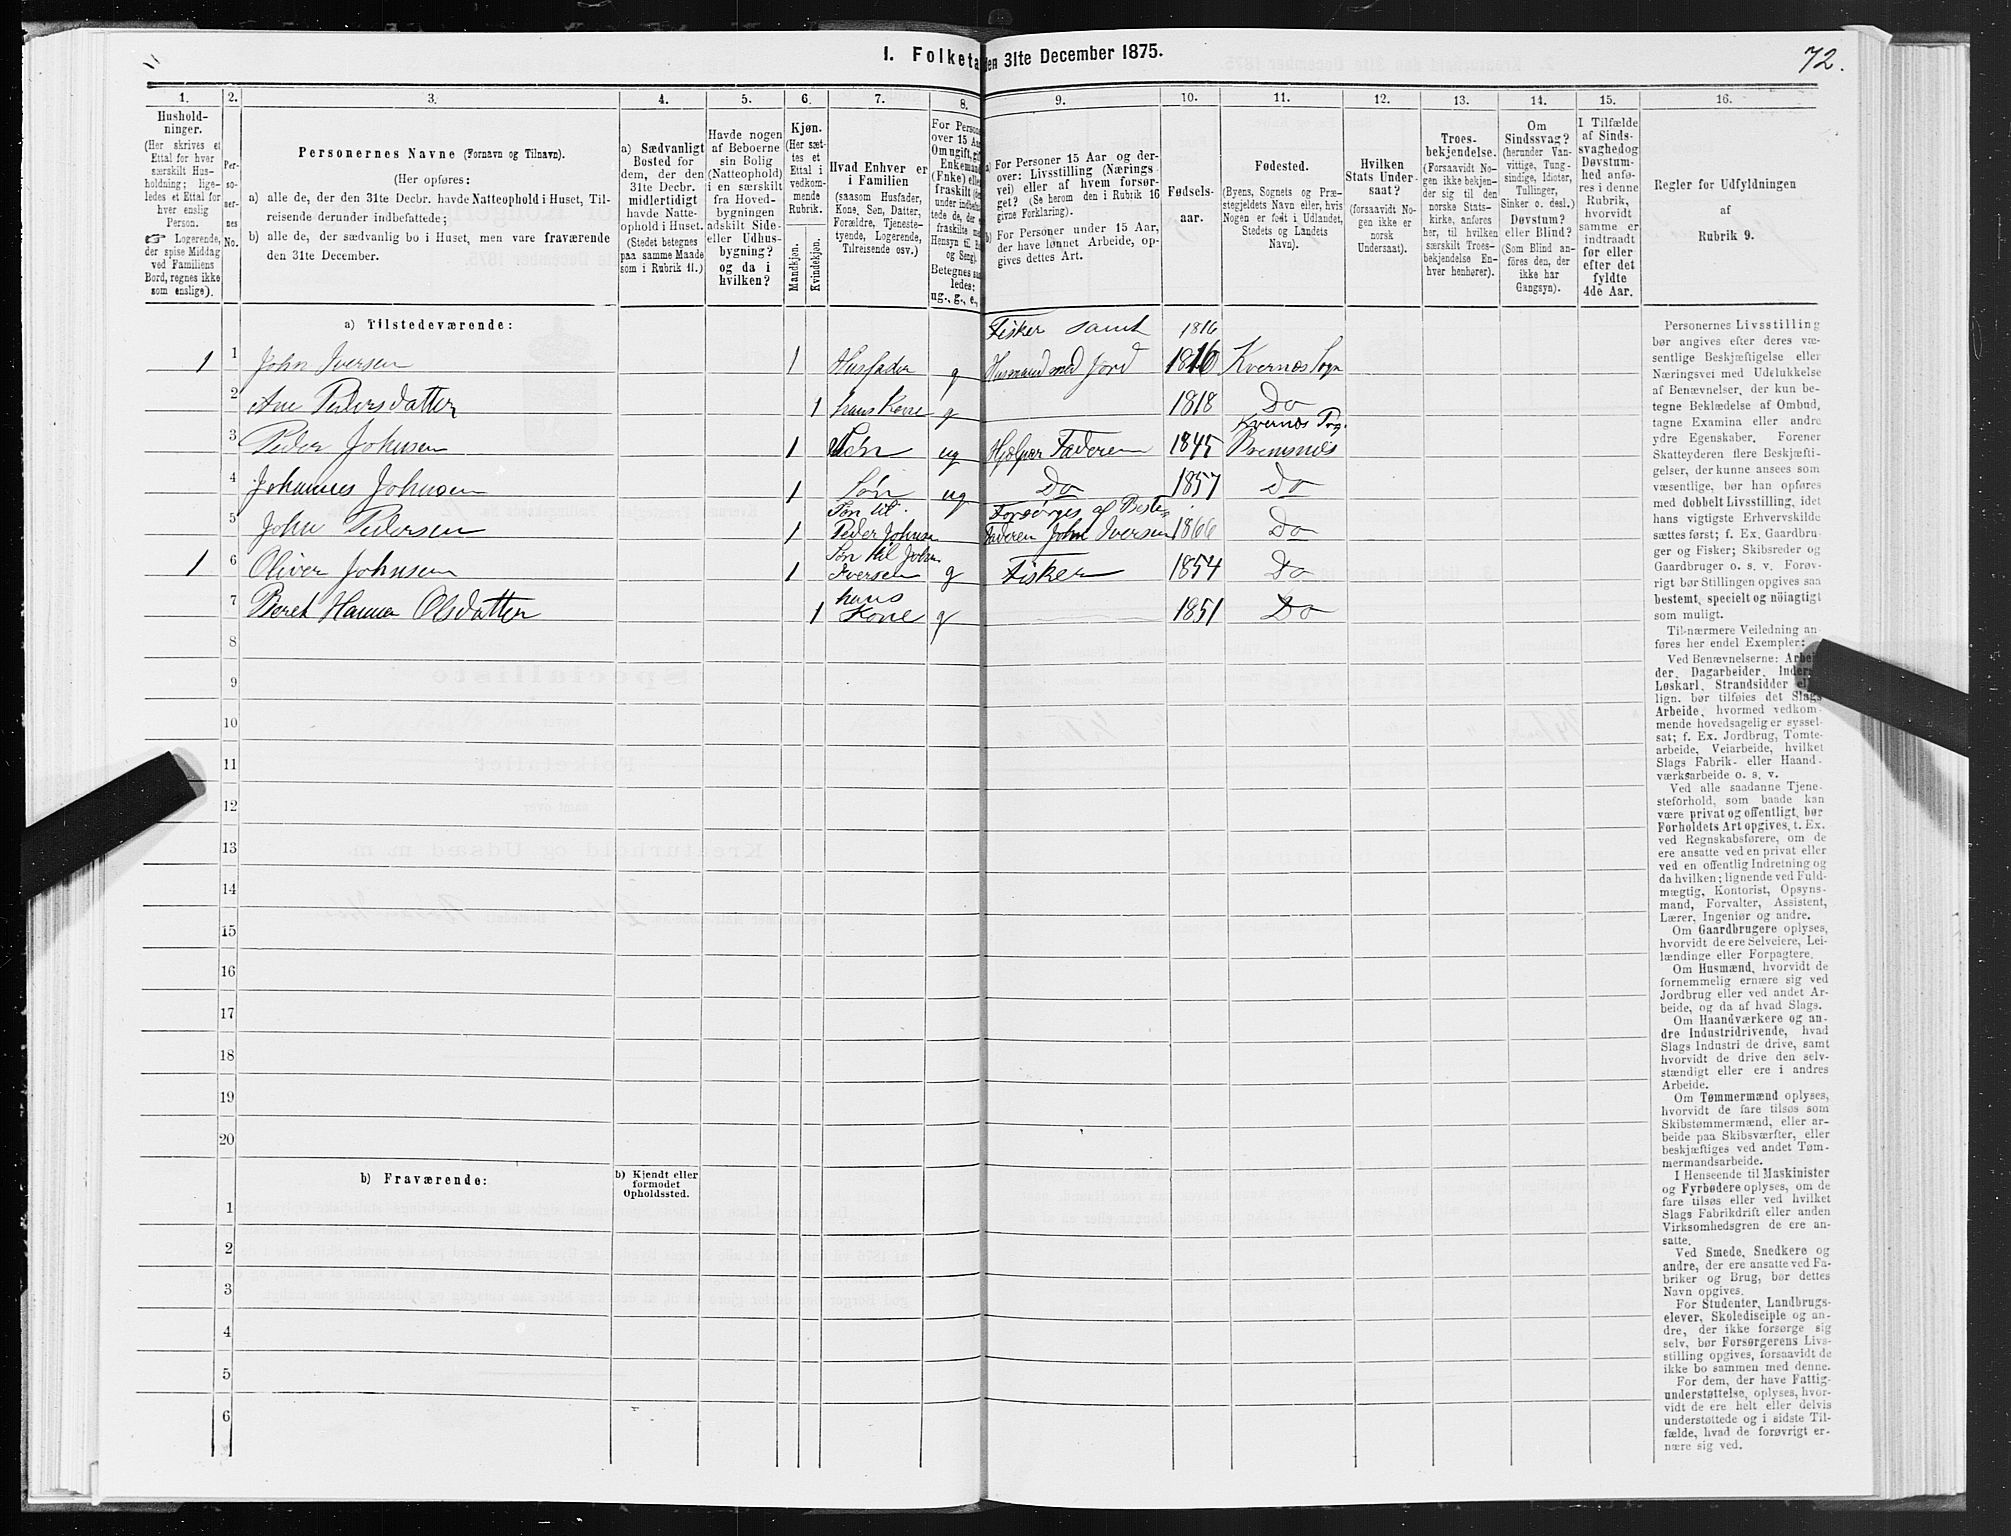 I. Folketa den 31te December 1875.
72.
1. 2. 3. 4. 5. 6. 7. 8. 9. 10. 11. 12. 13. 14. 15. 16.
Hushold-
ninger.
(Her skrives et
Ettal for hver
særskilt Hus-
holdning; lige-
ledes et Ettal for
hver enslig
Person.
☞ Logerende,
der spise Middag
ved Familiens
Bord, regnes ikke
som enslige).
Per-
so-
ner-
nes
No.
Personernes Navne (Fornavn og Tilnavn).
(Her opføres:
a) alle de, der den 31te Decbr. havde Natteophold i Huset, Til-
reisende derunder indbefattede;
b) alle de, der sædvanlig bo i Huset, men vare fraværende
den 31te December.
a) Sædvanligt
Bosted for
dem, der den
31te Decbr.
midlertidigt
havde Natte-
ophold i Huset.
(Stedet betegnes
paa samme Maade
som i Rubrik 11.)
Havde nogen
af Beboerne
sin Bolig
(Natteophold)
i en særskilt
fra Hoved-
bygningen
adskilt Side-
eller Udhus-
bygning?
og da i
hvilken?
Kjøn.
(Her sæt-
tes et
Ettal i
vedkom-
mende
Rubrik.
Mandkjøn.
Kvindekjøn.
Hvad Enhver er
i Familien
(saasom Husfader,
Kone, Søn, Datter,
Forældre, Tjeneste-
tyende, Logerende,
Tilreisende osv.)
For Person
over 15 Aa
Om ugift, gif
Enkemand
(Enke) elle
fraskilt (de
under indbefat
tede de, der
fraskilte me
Hensyn til B
og Seng).
Betegnes saa
ledes:
ug., g., e.,
a) For Personer 15 Aar og der-
over: Livsstilling (Nærings-
vei) eller af hvem forsør-
get? (Se herom den i Rubrik 16
givne Forklaring).
b) For Personer under 15 Aar,
der have lønnet Arbeide, op-
gives dettes Art.
Fødsels-
aar.
Fødested.
(Byens, Sognets og Præ-
stegjeldets Navn eller, hvis
Nogen er født i Udlandet,
Stedets og Landets
Navn).
Hvilken
Stats Under-
saat?
(forsaavidt No-
gen ikke er
norsk
Undersaat).
Troes-
bekjendelse.
(Forsaavidt No-
gen ikke bekjen-
der sig til den
norske Stats-
kirke, anføres
her, til hvilken
særskilt Troes-
bekjendelse En-
hver henhører).
Om
Sindssvag?
(herunder Van-
vittige, Tung-
sindige, Idioter,
Tullinger,
Sinker o. desl.)
Døvstum?
eller Blind?
(Som Blind an-
føres den, der
ikke har
Gangsyn).
I Tilfælde
af Sinds-
svaghed og
Døvstum-
hed anfø-
res i denne
Rubrik,
hvorvidt
samme er
indtraadt
før eller
efter det
fyldte
4de Aar.
Regler for Udfyldningen
af
Rubrik 9.
a) Tilstedeværende:
Fisker samt 1816
1 1 John Iversen 1 Husfader g Husmand med Jord 1816 Kvernes Sogn
2 Ane Pedersdatter 1 hans Kone g 1818 Do
Kvernes Prg.
3 Peder Johnsen 1 Søn ug Hjelper Faderen 1845 Bremsnes
4 Johannes Johnsen 1 Søn ug Do 1857 Do
Søn til Forsørges af Beste-
5 John Pedersen 1 Peder Johnsen Faderen John Iversen 1866 Do
Søn til John
1 6 Oliver Johnsen 1 Iversen g Fisker 1854 Do
hans
7 Beret Hanna Olsdatter 1 Kone g 1851 Do
8
9
10
11
12
13
14
15
16
17
18
19
20
b) Fraværende:
b) Kjendt eller
formodet
Opholdssted.
1
2
3
4
5
6
Personernes Livsstilling
bør angives efter deres væ-
sentlige Beskjæftigelse eller
Næringsvei med Udelukkelse
af Benævnelser, der kun be-
tegne Beklædelse af Ombud,
tagne Examina eller andre
ydre Egenskaber. Forener
Skatteyderen flere Beskjæfti-
gelser, der kunne ansees som
væsentlige, bør han opføres
med dobbelt Livsstilling, idet
hans vigtigste Erhvervskilde
sættes først; f. Ex. Gaardbru-
ger og Fisker; Skibsreder og
Gaardbruger o. s. v. Forøv-
rigt bør Stillingen opgives saa
bestemt, specielt og nöiagtigt
som muligt.
Til nærmere Veiledning an-
føres her endel Exempler:
Ved Benævnelserne: Arbei-
der, Dagarbeider, Inderst,
Løskarl, Strandsidder el.
lign. bør tilføies det Slags
Arbeide, hvormed vedkom-
mende hovedsagelig er syssel-
sat; f. Ex. Jordbrug, Tomte-
arbeide, Veiarbeide, hvilket
Slags Fabrik- eller Haand-
værksarbeide o. s. v.
Ved alle saadanne Tjene-
steforhold, som baade kan
være privat og offentligt, bør
Forholdets Art opgives, t. Ex.
ved Regnskabsførere, om de
ere ansatte ved en privat eller
ved en offentlig Indretning og
da hvilken; lignende ved Fuld-
mægtig, Kontorist, Opsyns-
mand, Forvalter, Assistent,
Lærer, Ingeniør og andre.
Om Gaardbrugere oplyses,
hvorvidt de ere Selveiere, Lei-
lændinge eller Forpagtere.
Om Husmænd, hvorvidt de
fornemmelig ernære sig ved
Jordbrug eller ved andet Ar-
beide, og da af hvad Slags.
Om Haandværkere og an-
dre Industridrivende, hvad
Slags Industri de drive, samt
hvorvidt de drive den selv-
stændigt eller ere i andres
Arbeide.
Om Tømmermænd oplyses,
hvorvidt de fare tilsøs som
Skibstømmermænd, eller ar-
beide paa Skibsværfter, eller
beskjæftiges ved andet Tøm-
mermandsarbeide.
I Henseende til Maskinister
og Fyrbødere oplyses, om de
fare tilsøs eller ved hvilket
Slags Fabrikdrift eller anden
Virksomhedsgren de ere an-
satte.
Ved Smede, Snedkere og
andre, der ere ansatte ved Fa-
briker og Brug, bør dettes
Navn opgives.
For Studenter, Landbrugs-
elever, Skoledisciple og an-
dre, der ikke forsørge sig
selv, bør Forsørgerens Livs-
stilling opgives, forsaavidt de
ikke bo sammen med denne.
For dem, der have Fattig-
understøttelse, oplyses, hvor-
vidt de ere helt eller delvis
understøttede og i sidste Til-
fælde, hvad de forøvrigt er-
nære sig ved.